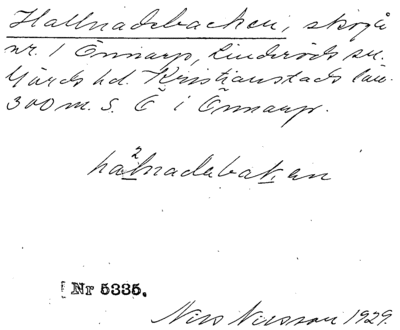 Hallnadebacken, skogå
nr. 1 Önnarp, Linderöds sn.
Gärds hd. Kristianstads län.
300 m. S. Ö i Önnarp.
ha²lnadebakan
Nr 5335.
Nils Nilsson 1929.